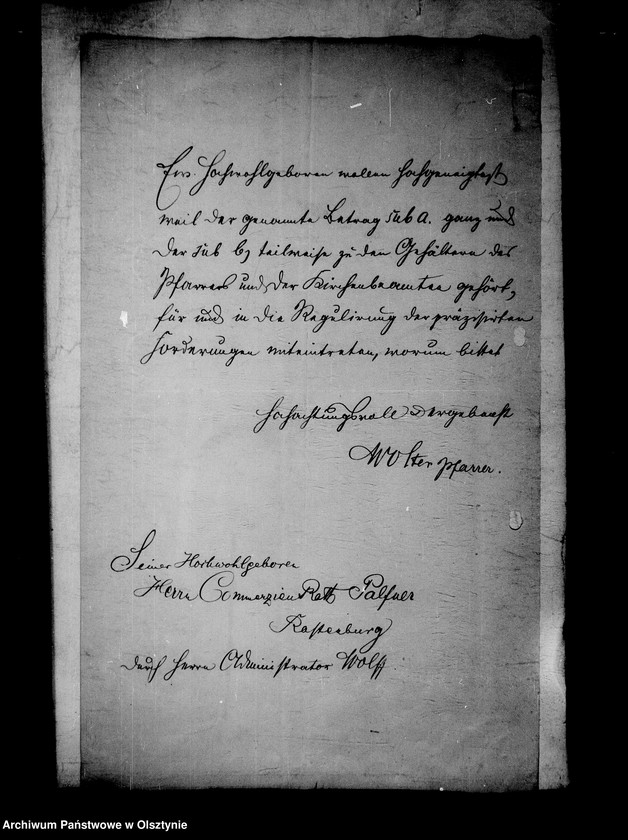 Ew. Hochwohlgeboren wollen hochgeneigtest
weil der genannte Betrag sub a. ganz und
der sub b) teilweise zu den Gehältern des
Pfarrers und der Kirchenbeamten gehört,
für und in die Regulirung der präzisirten
Forderungen miteintreten, worum bittet
Hochachtungsvoll u ergebenst
Wolter Pfarrer.
Seiner Hochwohlgeboren
Herrn Commerzien Rath Palfner
Rastenburg
durch Herrn Administrator Wolff.
Archiwum Państwowe w Olsztynie